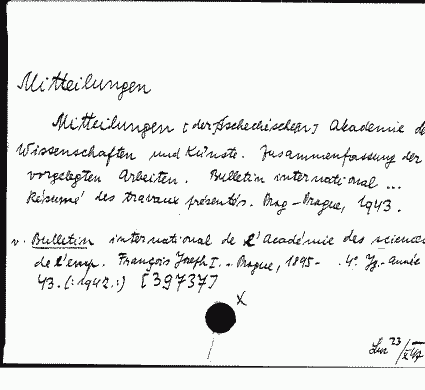 Mitteilungen
Mitteilungen [der Tschechischen] Akademie de
Wissenschaften und Künste. Zusammenfassung der
vorgelegten Arbeiten. Bulletin international ...
Résumé des travaux présentés. Prag-Prague, 1943.
v. Bulletin international de l'Académie des sciences
de l'emp. François Joseph I. - Prague, 1895- . 4°. Jg.-Année
43.(:1942.:) [39737]
x